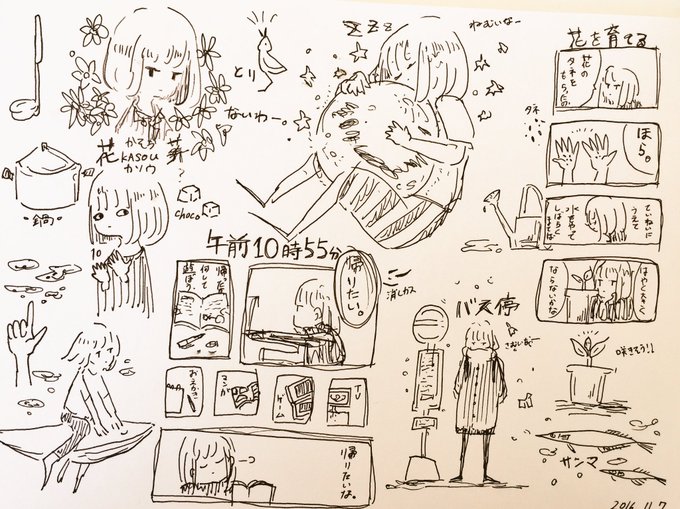 とり
ないわー。
花葬?
かそう
KASOU
カソウ
鍋
10
choco
zzz
ねむいなー
花を育てる
花の
タネを
もらった
ほら。
タネ
ていねいに
うえて
水をやって
しばらく
まてば
はやく大きく
ならないかな
咲きそう!!
サンマ
午前10時55分
帰りたい。
帰ったら
何して
遊ぼう。
おえかき
マンガ
ゲーム
TV
帰りたいな。
消しカス
バス停
さむいなー
2016.11.7